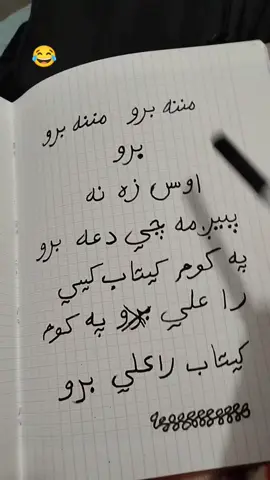 مننه برو مننه برو
برو
اوس زه نه
پيېږمه چي دعه برو
په کوم کيتاب کيي
را علي په کوم
کيتاب راعلي برو